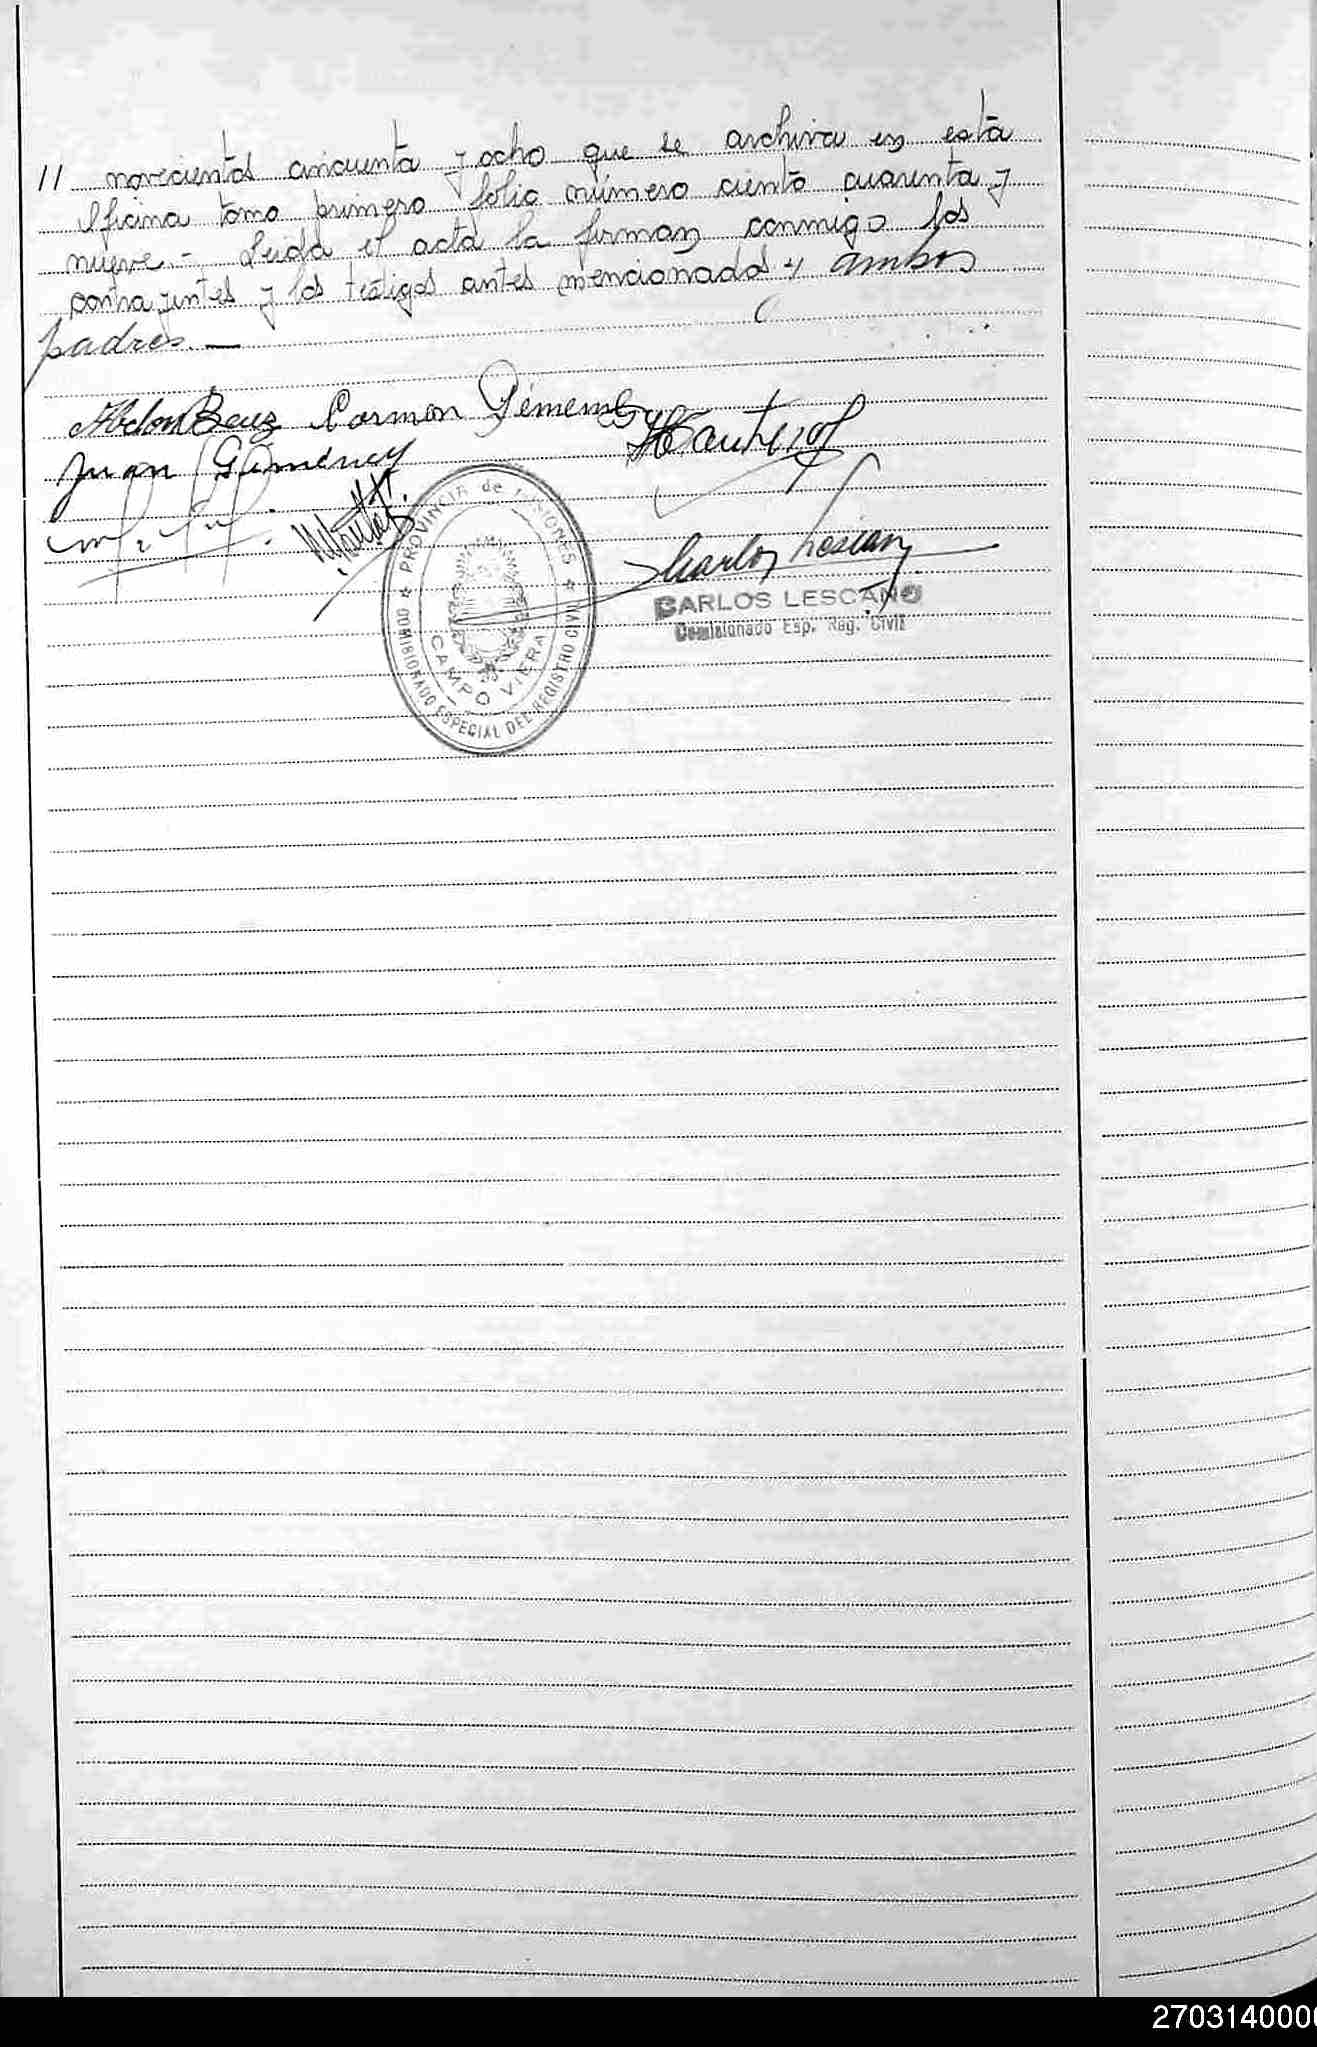 // novecientos cincuenta y ocho que se archiva en esta
Oficina tomo primero folio número ciento cuarenta y
nueve.- Leida el acta la firman conmigo los
contrayentes y los testigos antes mencionados y ambos
padres.—
Abdon Carmen
Juan Giménez
PROVINCIA de MISIONES
COMISIONADO ESPECIAL DEL REGISTRO CIVIL
CAMPO VIERA
Carlos Lescano
CARLOS LESCANO
Comisionado Esp. Reg. Civil
2703140000